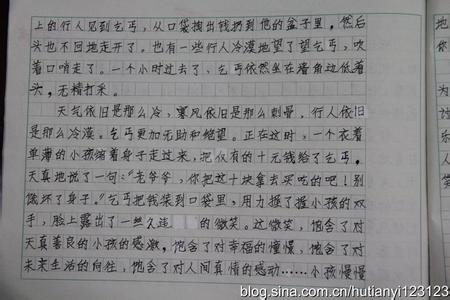 上的行人见到乞丐，从口袋拽出钱扔到他的盆子里，然后
头也不回地走开了。也有一些行人冷漠地望了望乞丐，吹
着口哨走了。一个小时过去了，乞丐依然坐在墙角边低着
头，无精打采。
天气依旧是那么冷，寒风依旧是那么刺骨，行人依旧
是那么冷漠。乞丐更加无助和绝望。正在这时，一个衣着
单薄的小孩缩着身子走过来，把仅有的十元钱给了乞丐。
天真地说了一句："老爷爷，你把这十块拿去买吃的吧！别
做坏了身子。"乞丐把钱装到口袋里，用力握了握小孩的双
手，脸上露出了一丝久违的微笑。这微笑，饱含了对
天真善良的小孩的感激，饱含了对幸福的憧憬，饱含了对
未来生活的向往，饱含了对人间真情的感动……小孩慢慢
地
你
为
过
乐
人
blog.sina.com.cn/hutianyi123123